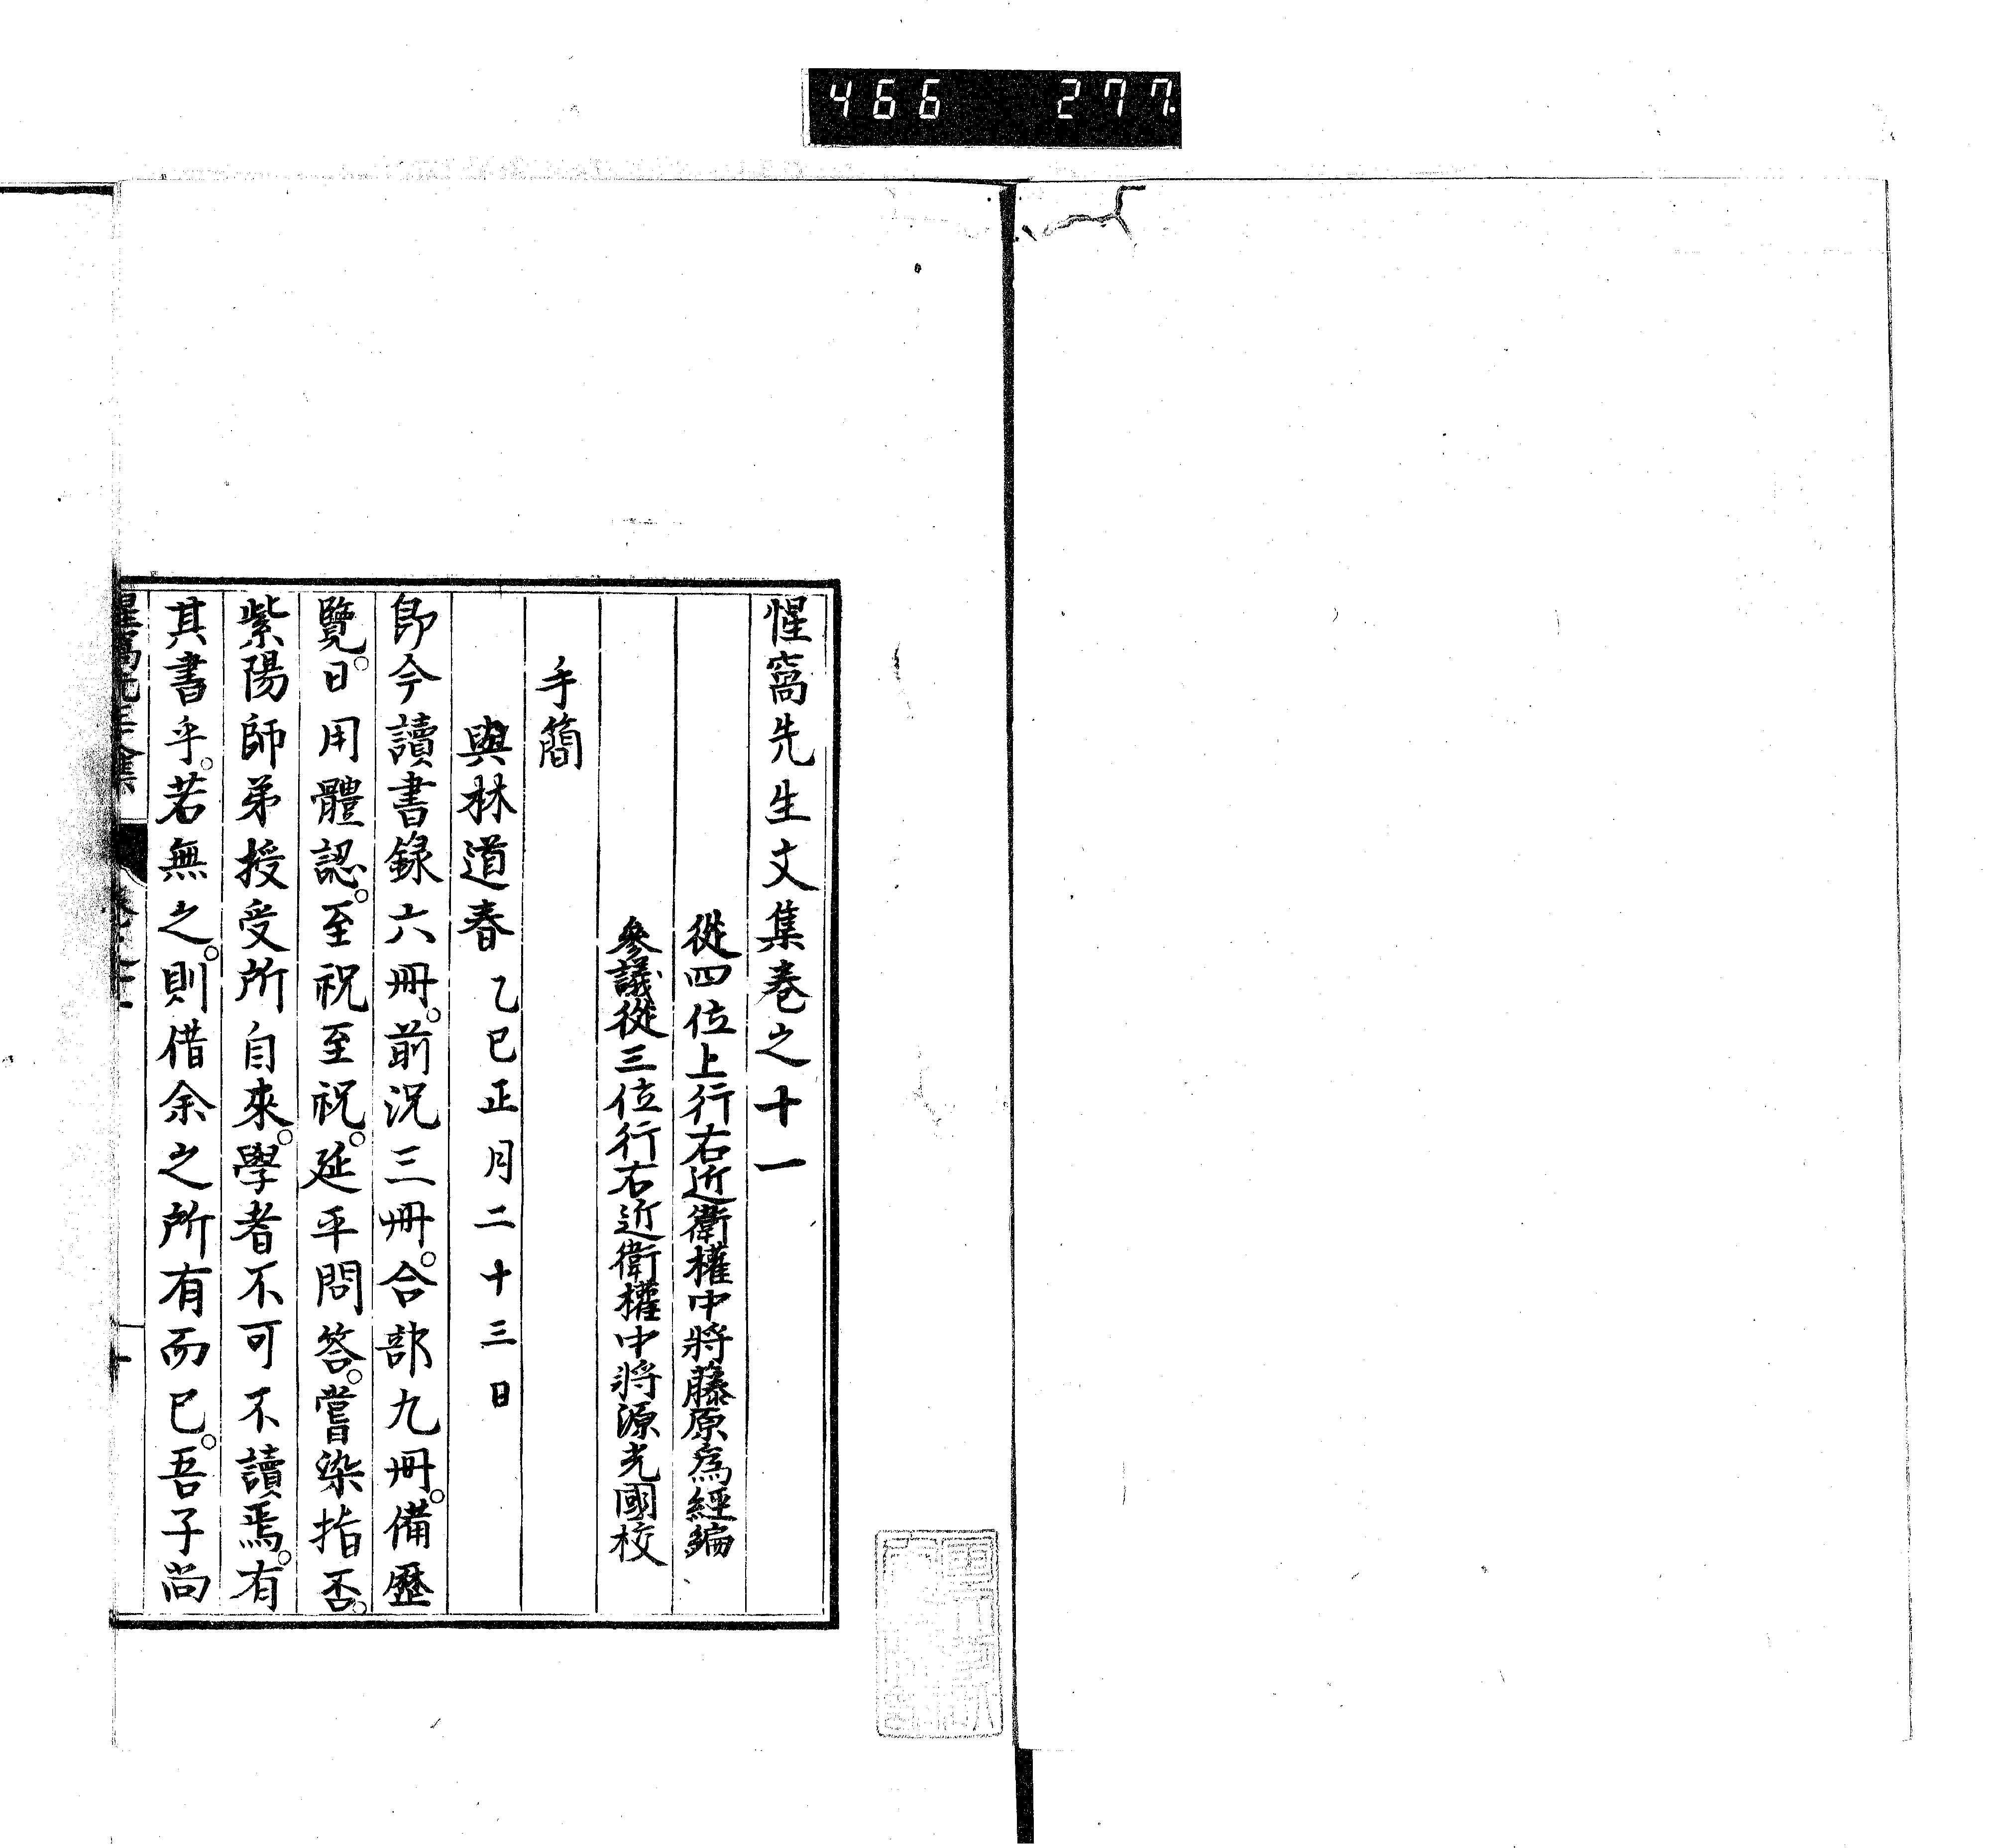 466 277
惺窩先生文集卷之十一
從四位上行右近衛權中將藤原爲經編
參議從三位行右近衛權中將源光國校
手簡
與林道春 乙巳正月二十三日
即今讀書録六冊。前況三冊。合部九冊。備歷
覽。日用體認。至祝至祝。延平問答。嘗染指否。
紫陽師弟授受所自來。學者不可不讀焉。有
其書乎。若無之。則借余之所有而已。吾子尚